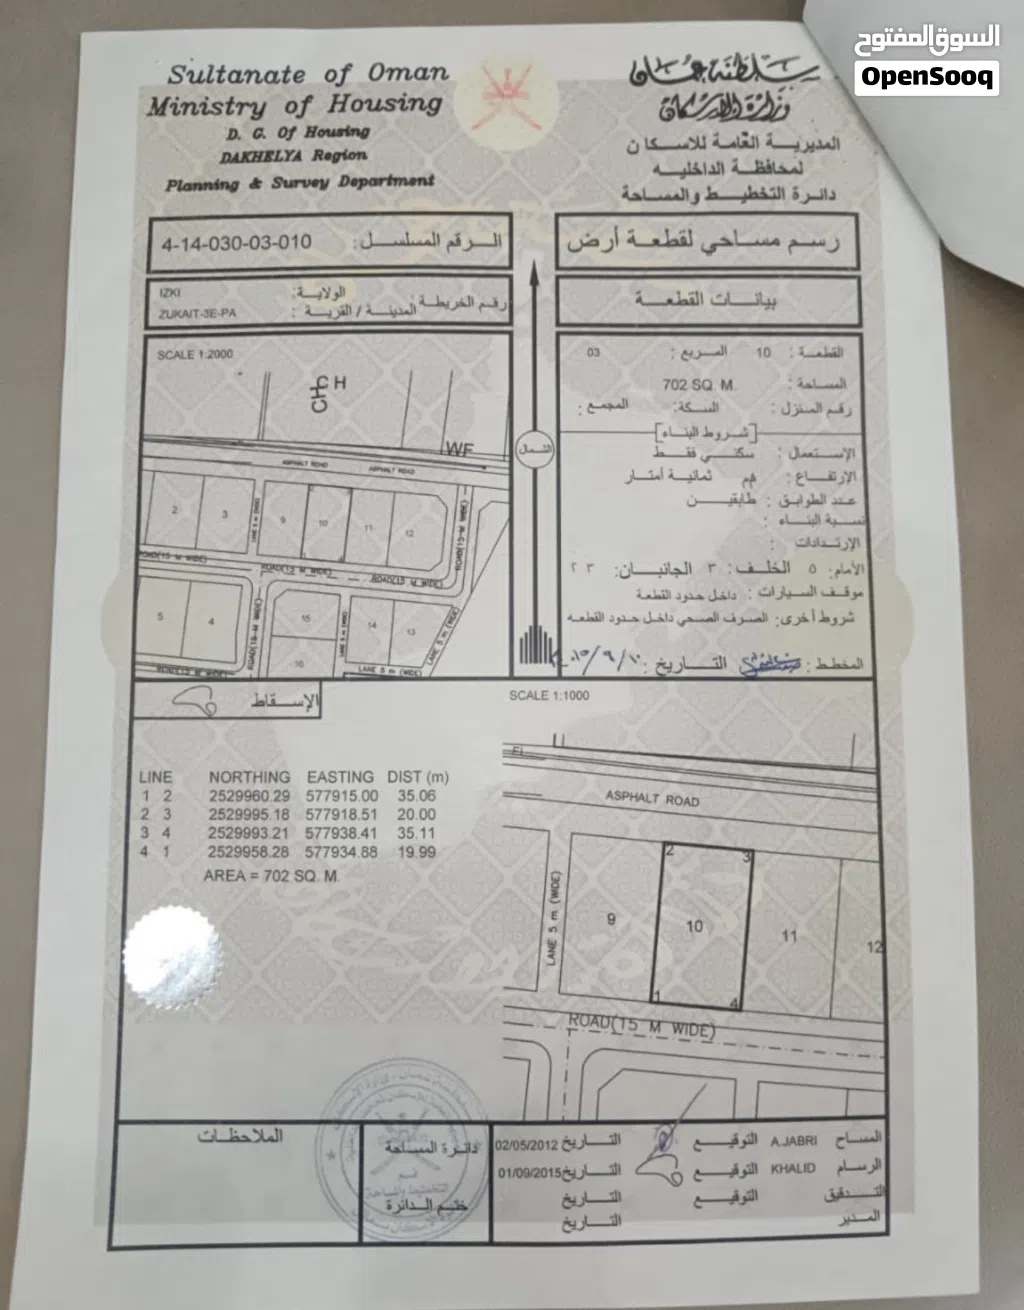 السوق المفتوح
OpenSooq
Sultanate of Oman
Ministry of Housing
D. G. Of Housing
DAKHELYA Region
Planning & Survey Department
سلطنة عمان
وزارة الإسكان
المديرية العامة للاسكان
لمحافظة الداخليه
دائرة التخطيط والمساحة
الرقم المسلسل: 4-14-030-03-010
رسم مساحي لقطعة أرض
الولاية: IZKI
رقم الخريطة المدينة / القرية : ZUKAIT-3E-PA
بيانات القطعة
SCALE 1:2000
القطعة : 10 المربع : 03
المساحة : 702 SQ. M.
رقم المنزل : السكة: المجمع :
شروط البناء
الإستعمال : سكني فقط
الارتفاع : ٨م ثمانية أمتار
عدد الطوابق : طابقين
نسبة البناء :
الإرتدادات :
الأمام: ٥ الخلف: ٣ الجانبان: ٣ ٢
موقف السيارات : داخل حدود القطعة
شروط أخرى: الصرف الصحي داخل حدود القطعه
المخطط : التاريخ :
الشمال
CH H
WF
ASPHALT ROAD ASPHALT ROAD
2 3 LANE 5 m (WIDE) 9 10 11 12 ROAD(15-M WIDE)
ROAD(15 M WIDE) ROAD(15 M WIDE) ROAD(15 M WIDE)
5 4 ROAD(15-M WIDE) 15 14 13 LANE 5 m (WIDE)
16
LANE 5 m (WIDE)
الإسقاط
LINE NORTHING EASTING DIST (m)
1 2 2529960.29 577915.00 35.06
2 3 2529995.18 577918.51 20.00
3 4 2529993.21 577938.41 35.11
4 1 2529958.28 577934.88 19.99
AREA = 702 SQ. M.
SCALE 1:1000
ASPHALT ROAD
2 3
LANE 5 m (WIDE) 9 10 11 12
1 4
ROAD(15 M WIDE)
الملاحظات
دائرة المساحة
ختم الدائرة
المساح A.JABRI التوقيع التاريخ 02/05/2012
الرسام KHALID التوقيع التاريخ 01/09/2015
التدقيق التوقيع التاريخ
المدير التاريخ